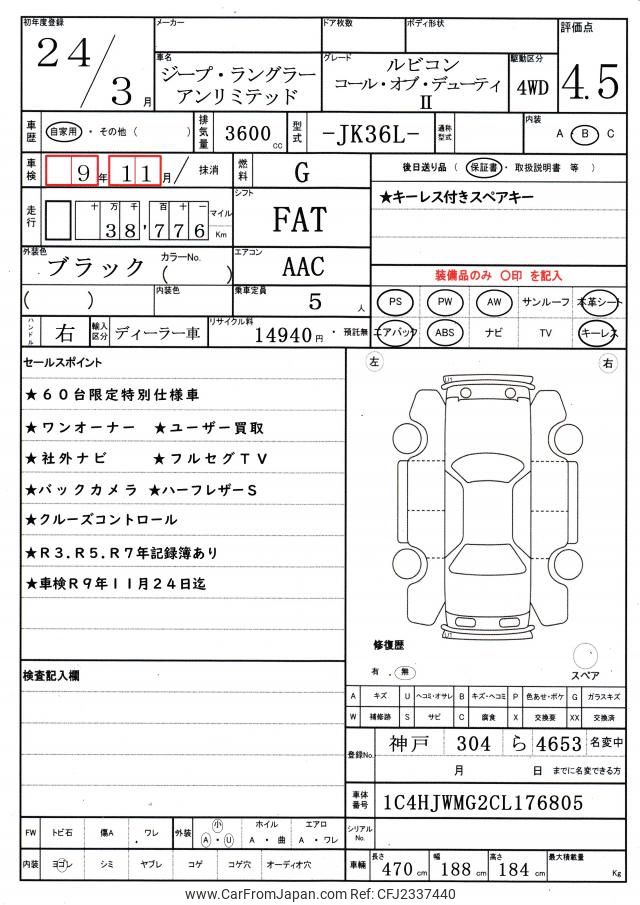 初年度登録
24/3月
メーカー
ドア枚数
ボディ形状
車名
ジープ・ラングラー
アンリミテッド
グレード
ルビコン
コール・オブ・デューティ
Ⅱ
駆動区分
4WD
評価点
4.5
車歴
自家用 ・ その他 ( )
排気量
3600cc
型式
-JK36L-
通称型式
内装
A ・ B C
車検
9年11月/ 抹消
燃料
G
後日送り品 ( 保証書 ・ 取扱説明書 等 )
★キーレス付きスペアキー
走行
十 万 千 百 十 一
38,776
マイル
Km
シフト
FAT
外装色
ブラック
カラーNo.
( )
( )
内装色
エアコン
AAC
乗車定員
5人
装備品のみ 〇印 を記入
PS PW AW サンルーフ 本革シート
エアバック ABS ナビ TV キーレス
ハンドル
右
輸入区分
ディーラー車
リサイクル料
14940円 ・ 預託無
セールスポイント
★60台限定特別仕様車
★ワンオーナー ★ユーザー買取
★社外ナビ ★フルセグTV
★バックカメラ ★ハーフレザーS
★クルーズコントロール
★R3.R5.R7年記録簿あり
★車検R9年11月24日迄
左
右
修復歴
有 ・ 無
スペア
検査記入欄
A キズ U ヘコミ・オサレ B キズ・ヘコミ P 色あせ・ボケ G ガラスキズ
W 補修跡 S サビ C 腐食 X 交換要 XX 交換済
登録No.
神戸 304 ら 4653 名変中
月 日 までに名変できる方
車体番号
1C4HJWMG2CL176805
シリアルNo.
FW トビ石 傷A ・ワレ
外装 小 A ・ U
ホイル A ・ 曲
エアロ A ・ ワレ
内装 ヨゴレ シミ ヤブレ コゲ コゲ穴 オーディオ穴
車輌
長さ 470cm
幅 188cm
高さ 184cm
最大積載量 Kg
www.CarFromJapan.com Ref: CFJ2337440